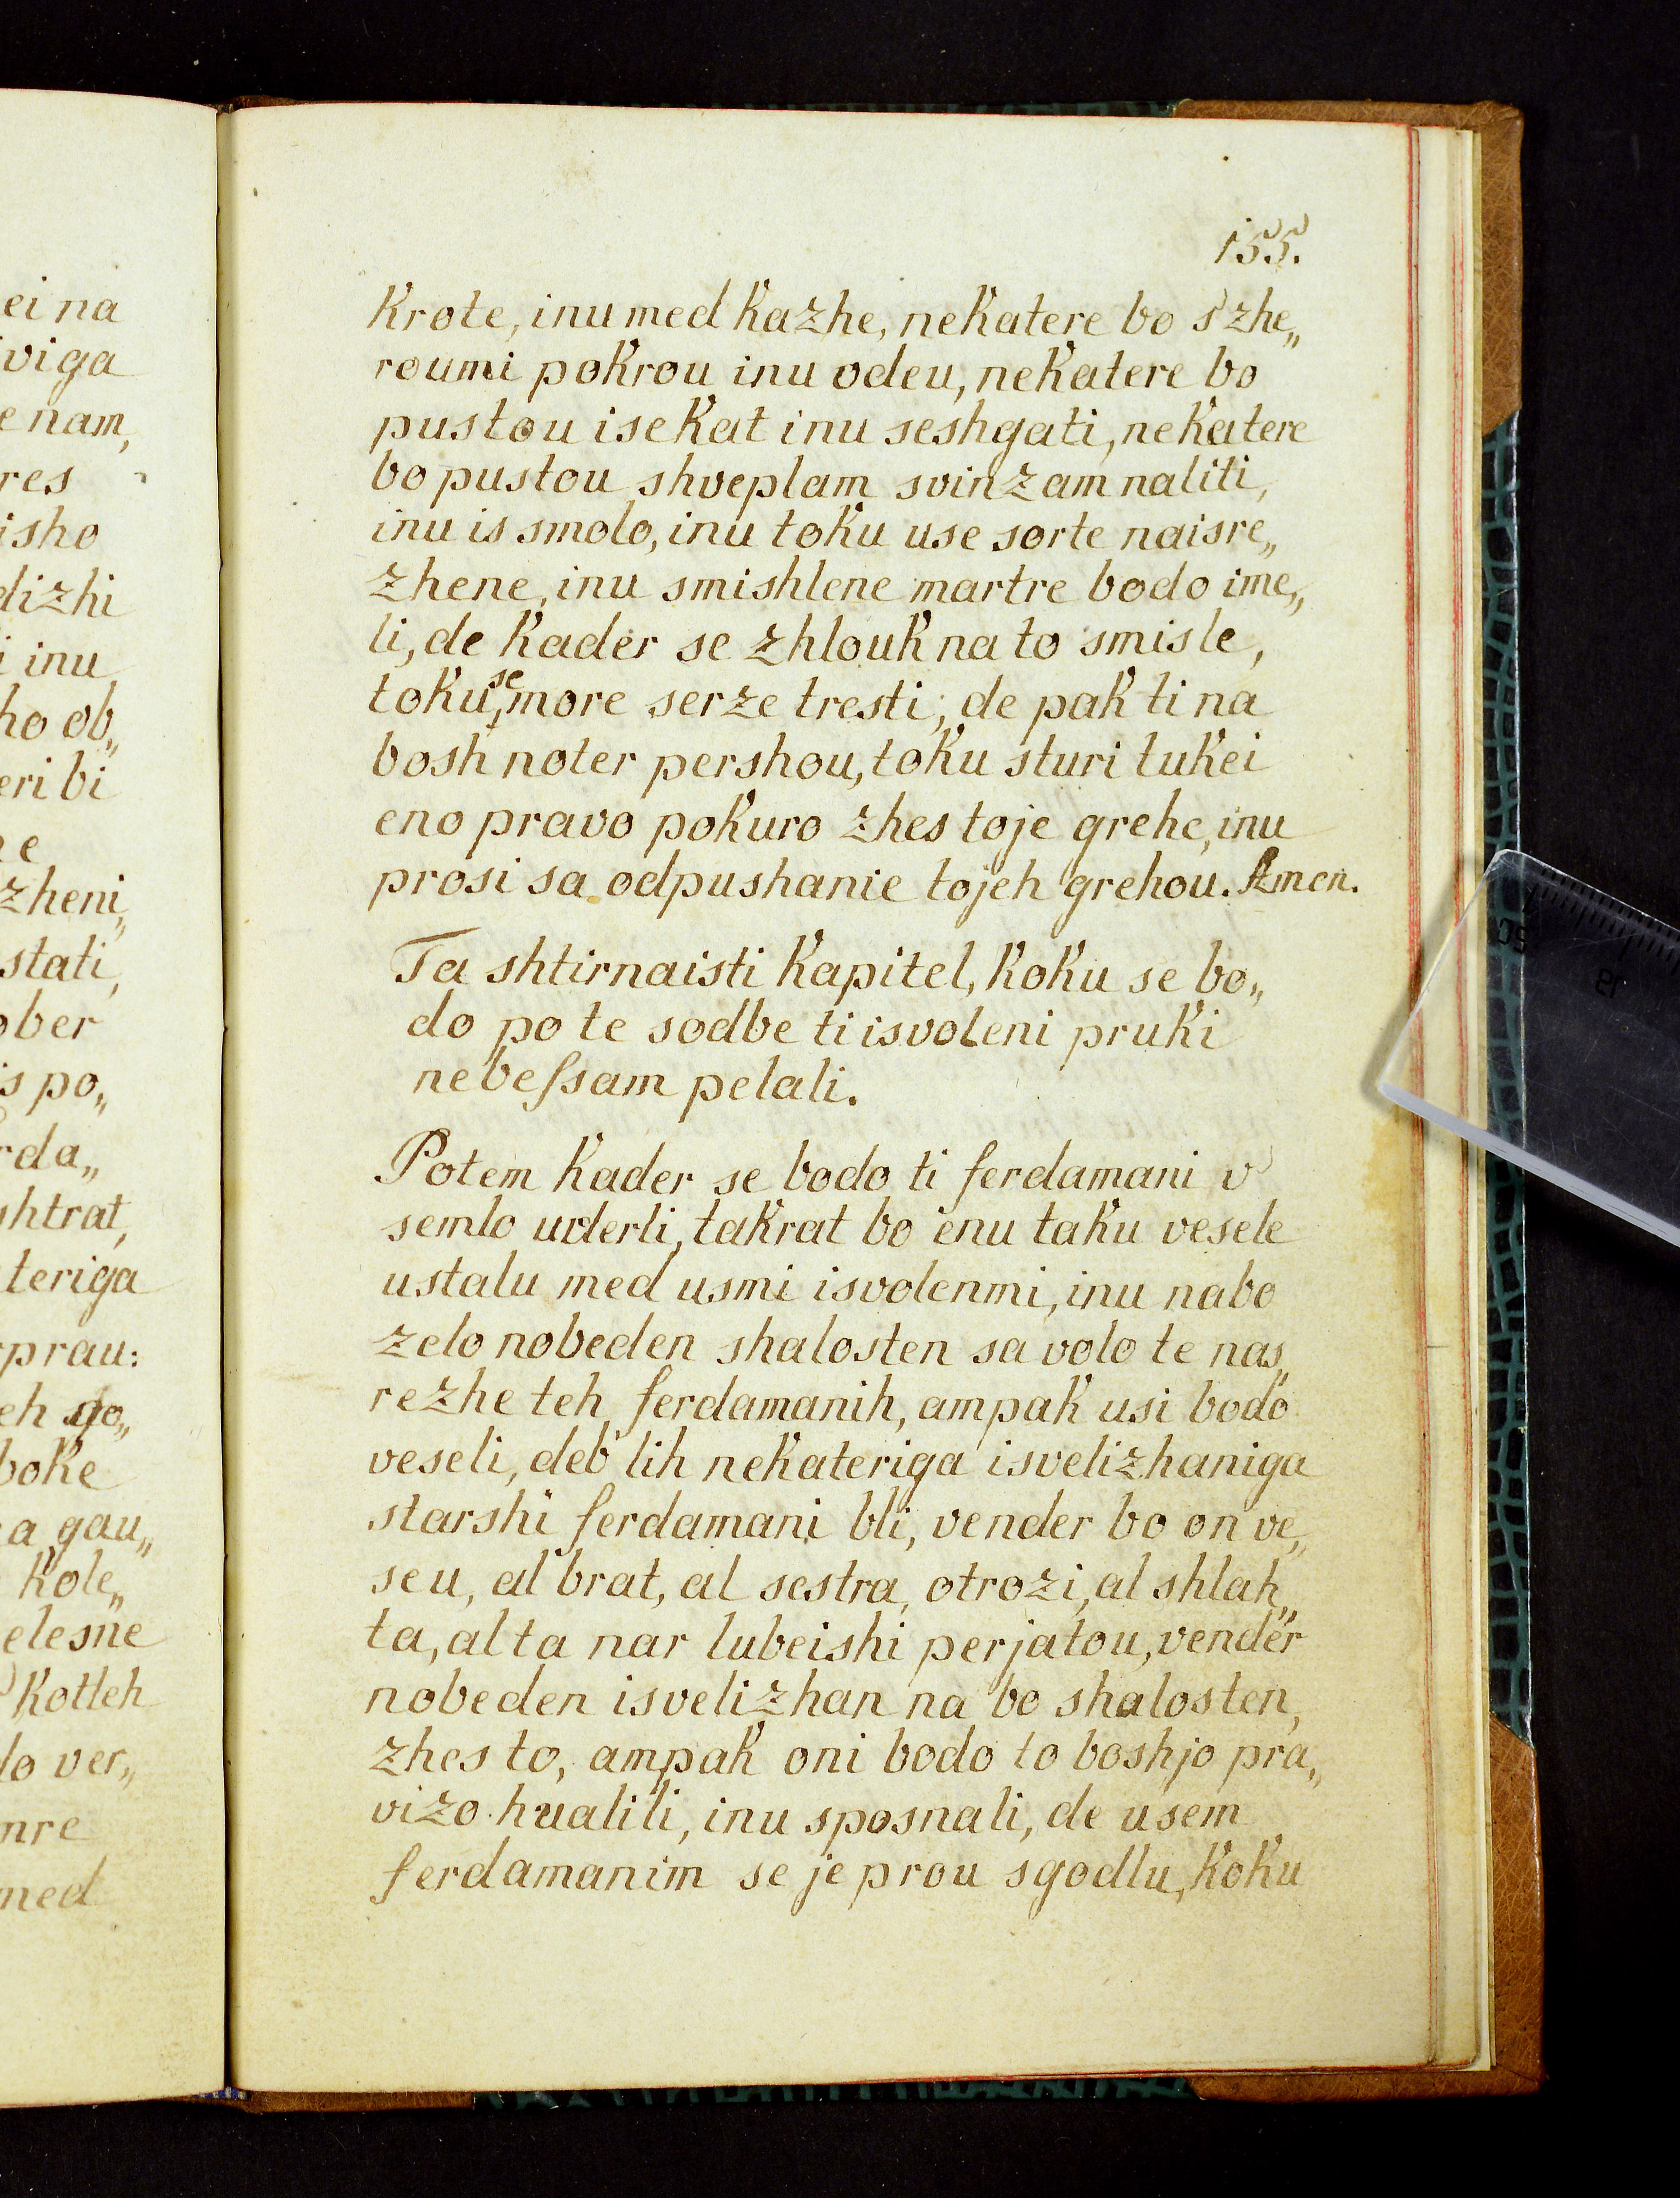 155.
krote, inu med kazhe, nekatere bo s' zhe„
roumi pokrou inu odeu, nekatere bo
pustou isekat inu seshgati, nekatere
bo pustou shveplam svinzam naliti,
inu is smolo, inu toku use sorte naisre„
zhene, inu smishlene martre bodo ime„
li, de kader se zhlouk na to smisle,
toku se more serze tresti; de pak ti na
bosh noter pershou, toku sturi tukei
eno pravo pokuro zhes toje grehe, inu
prosi sa odpushanie tojeh grehou. Amen.
Ta shtirnaisti kapitel, koku se bo„
do po te sodbe ti isvoleni pruki
nebeſsam pelali.
Potem kader se bodo ti ferdamani v'
semlo uderli, takrat bo enu taku vesele
ustalu med usmi isvolenmi, inu nabo
zelo nobeden shalosten sa volo te nas„
rezhe teh ferdamanih, ampak usi bodo
veseli, deb' lih nekateriga isvelizhaniga
starshi ferdamani bli, vender bo on ve„
seu, al brat, al sestra, otrozi, al shlah„
ta, al ta nar lubeishi perjatou, vender
nobeden isvelizhan na bo shalosten,
zhes to, ampak oni bodo to boshjo pra„
vizo hualili, inu sposnali, de usem
ferdamanim se je prou sgodlu, koku
ei na
viga
e nam,
res
isho
dizhi
i inu
ho ob„
eri bi
e
zheni,
stati,
ober
is po„
rda„
shtrat,
teriga
prau:
eh go„
boke
a gau„
kole„
elesne
kotleh
lo ver„
nre
med